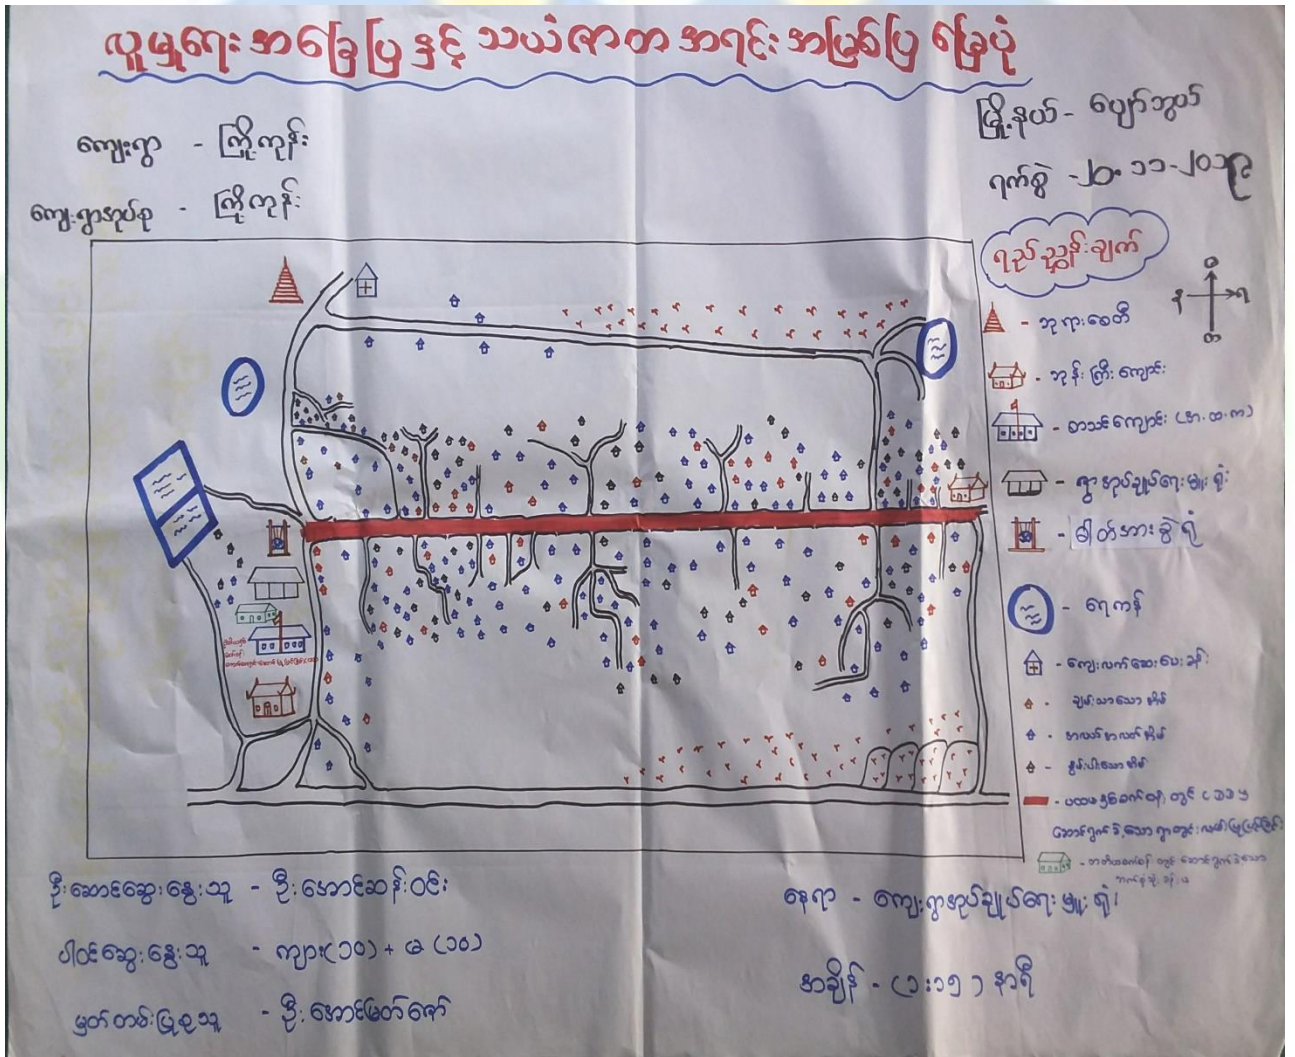 လူမှုရေးအခြေပြနှင့် သယံဇာတ အရင်းအမြစ်ပြ မြေပုံ
ကျေးရွာ - ကြို့ကုန်း
ကျေးရွာအုပ်စု - ကြို့ကုန်း
မြို့နယ် - ပျော်ဘွယ်
ရက်စွဲ - ၂၀.၁၁-၂၀၁၉
ရည်ညွှန်းချက်
ဘုရားစေတီ
ဘုန်းကြီးကျောင်း
စာသင်ကျောင်း (အ.ထ.က)
ရွာအုပ်ချုပ်ရေးမှူးရုံး
ဓါတ်အားခွဲရုံ
ရေကန်
ကျေးလက်ဆေးပေးခန်း
ချမ်းသာသောအိမ်
အလယ်အလတ်အိမ်
နွမ်းပါးသောအိမ်
ဦးဆောင်ဆွေးနွေးသူ - ဦးအောင်ဆန်းဝင်း
ပါဝင်ဆွေးနွေးသူ - ကျား(၁၀) + မ (၁၀)
မှတ်တမ်းပြုစုသူ - ဦးအောင်မြတ်ဇော်
နေရာ - ကျေးရွာအုပ်ချုပ်ရေးမှူးရုံး
အချိန် - (၁:၁၅) နာရီ